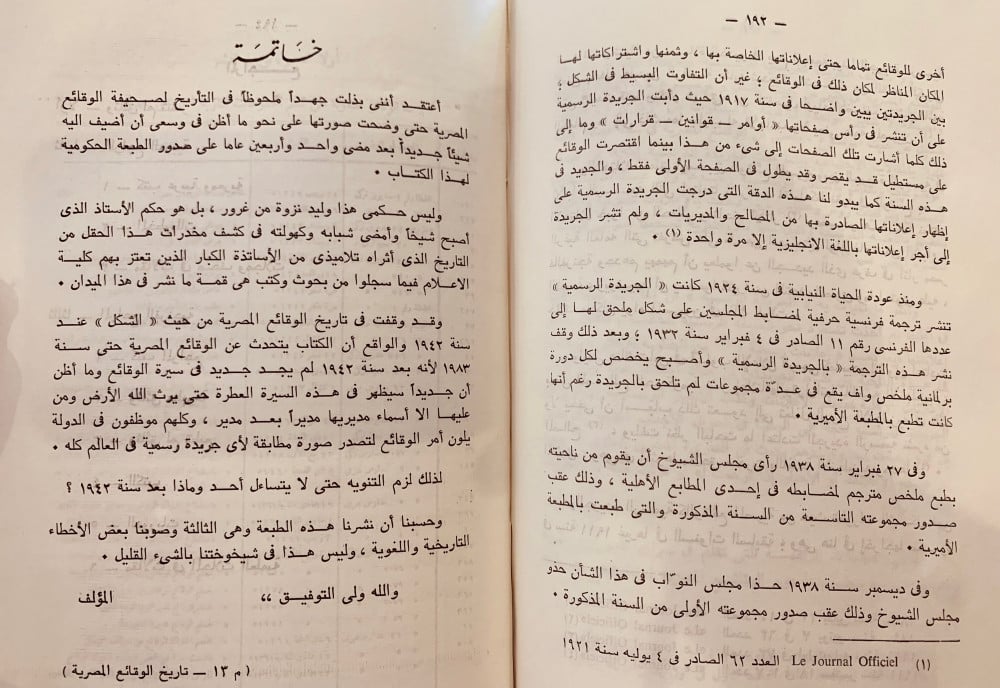 — ١٩٢ —
أخرى للوقائع تماما حتى إعلاناتها الخاصة بها ، وثمنها واشتراكاتها لها
المكان المناظر لمكان ذلك فى الوقائع ؛ غير أن التفاوت البسيط فى الشكل ؛
بين الجريدتين يبين واضحا فى سنة ١٩١٧ حيث دأبت الجريدة الرسمية
على أن تنشر فى رأس صفحاتها « أوامر — قوانين — قرارات » وما إلى
ذلك كلما أشارت تلك الصفحات إلى شىء من هذا بينما اقتصرت الوقائع
على مستطيل قد يقصر وقد يطول فى الصفحة الأولى فقط ، والجديد فى
هذه السنة كما يبدو لنا هذه الدقة التى درجت الجريدة الرسمية على
إظهار إعلاناتها الصادرة بها من المصالح والمديريات ، ولم تشر الجريدة
إلى أجر إعلاناتها باللغة الانجليزية إلا مرة واحدة (١) ٠
ومنذ عودة الحياة النيابية فى سنة ١٩٢٤ كانت « الجريدة الرسمية »
تنشر ترجمة فرنسية حرفية لمضابط المجلسين على شكل ملحق لها إلى
عددها الفرنسى رقم ١١ الصادر فى ٤ فبراير سنة ١٩٣٢ ؛ وبعد ذلك وقف
نشر هذه الترجمة « بالجريدة الرسمية » وأصبح يخصص لكل دورة
برلمانية ملخص واف يقع فى عدّة مجموعات لم تلحق بالجريدة رغم أنها
كانت تطبع بالمطبعة الأميرية ٠
وفى ٢٧ فبراير سنة ١٩٣٨ رأى مجلس الشيوخ أن يقوم من ناحيته
بطبع ملخص مترجم لمضابطه فى إحدى المطابع الأهلية ، وذلك عقب
صدور مجموعته التاسعة من السنة المذكورة والتى طبعت بالمطبعة
الأميرية ٠
وفى ديسمبر سنة ١٩٣٨ حذا مجلس النوّاب فى هذا الشأن حذو
مجلس الشيوخ وذلك عقب صدور مجموعته الأولى من السنة المذكورة ٠
(١) Le Journal Officiel العدد ٦٢ الصادر فى ٤ يوليه سنة ١٩٢١
خاتمة
أعتقد أننى بذلت جهداً ملحوظاً فى التأريخ لصحيفة الوقائع
المصرية حتى وضحت صورتها على نحو ما أظن فى وسعى أن أضيف اليه
شيئاً جديداً بعد مضى واحد وأربعين عاما على صدور الطبعة الحكومية
لهذا الكتاب ٠
وليس حكمى هذا وليد نزوة من غرور ، بل هو حكم الأستاذ الذى
أصبح شيخاً وأمضى شبابه وكهولته فى كشف مخدرات هذا الحقل من
التاريخ الذى أثراه تلاميذى من الأساتذة الكبار الذين تعتز بهم كلية
الاعلام فيما سجلوا من بحوث وكتب هى قمة ما نشر فى هذا الميدان ٠
وقد وقفت فى تاريخ الوقائع المصرية من حيث « الشكل » عند
سنة ١٩٤٢ والواقع أن الكتاب يتحدث عن الوقائع المصرية حتى سنة
١٩٨٣ لأنه بعد سنة ١٩٤٢ لم يجد جديد فى سيرة الوقائع وما أظن
أن جديداً سيظهر فى هذه السيرة العطرة حتى يرث الله الأرض ومن
عليها الا أسماء مديريها مديراً بعد مدير ، وكلهم موظفون فى الدولة
يلون أمر الوقائع لتصدر صورة مطابقة لأى جريدة رسمية فى العالم كله ٠
لذلك لزم التنويه حتى لا يتساءل أحد وماذا بعد سنة ١٩٤٢ ؟
وحسبنا أن نشرنا هذه الطبعة وهى الثالثة وصوبنا بعض الأخطاء
التاريخية واللغوية ، وليس هذا فى شيخوختنا بالشىء القليل ٠
والله ولى التوفيق ،،
المؤلف
( م ١٣ — تاريخ الوقائع المصرية )